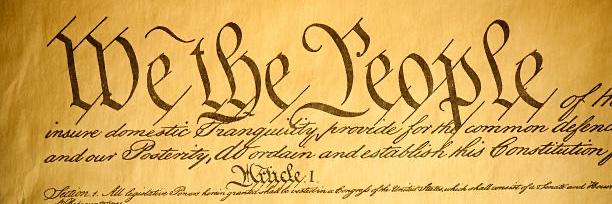 We the People of th
insure domestic Tranquility, provide for the common defence
and our Posterity, do ordain and establish this Constitution
Article. I.
Section. 1. All legislative Powers herein granted shall be vested in a Congress of the United States, which shall consist of a Senate and House